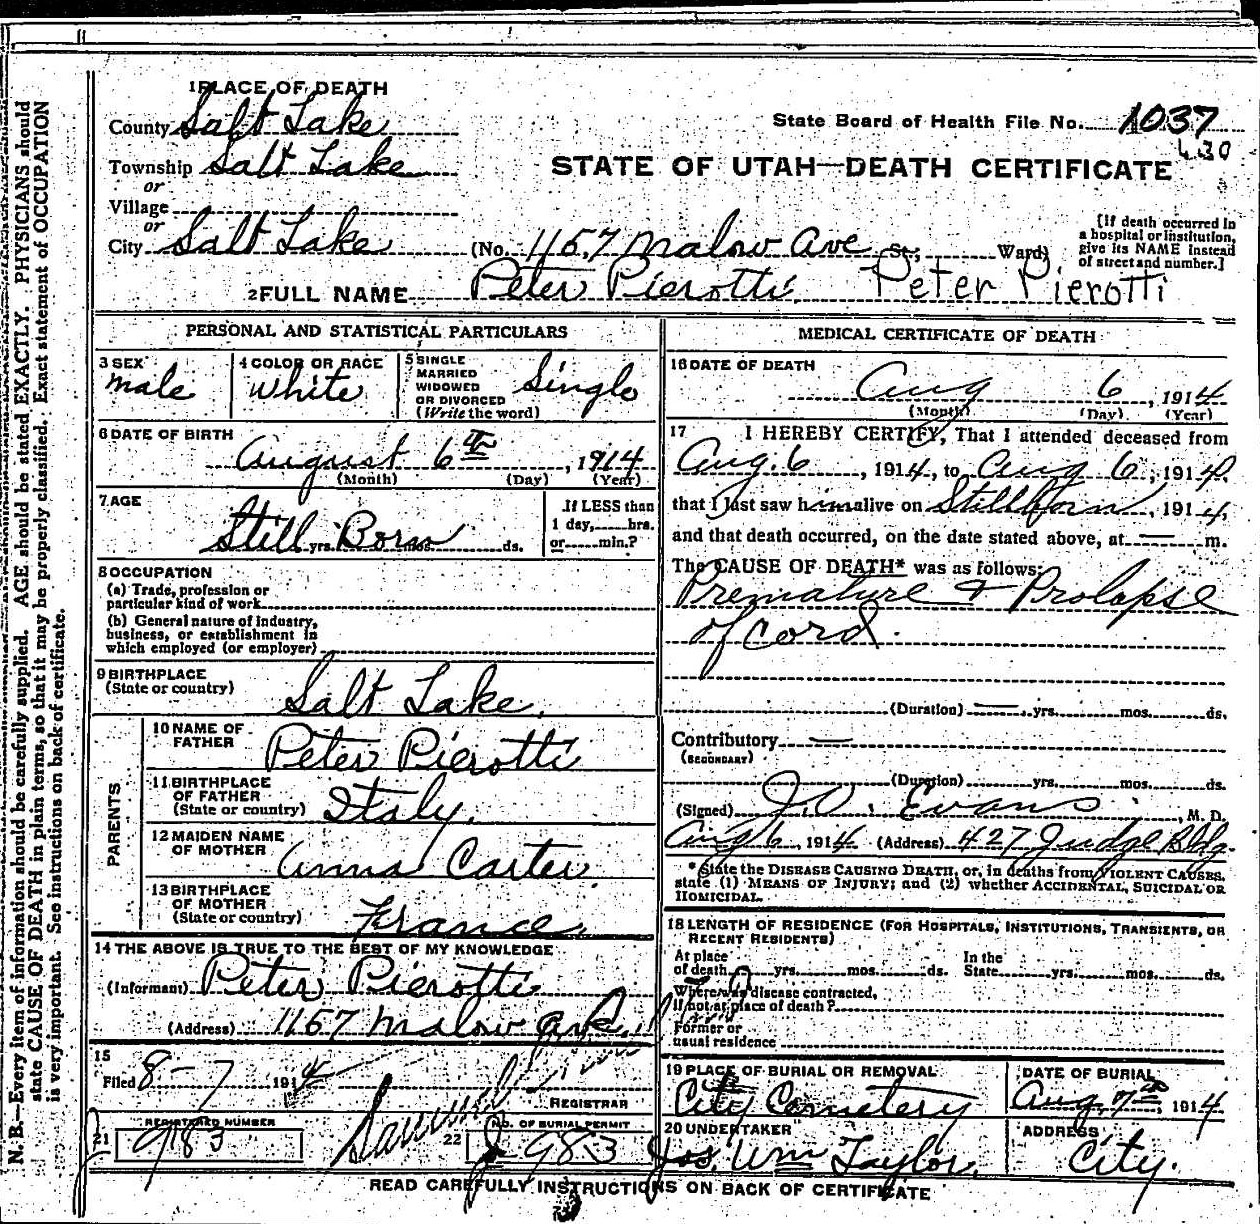 1 PLACE OF DEATH
County Salt Lake
State Board of Health File No. 1037
430
Township Salt Lake
or
STATE OF UTAH—DEATH CERTIFICATE
Village
or
City Salt Lake (No. 1157 Malow Ave St; Ward)
[If death occurred in
a hospital or institution,
give its NAME instead
of street and number.]
2 FULL NAME Peter Pierotti Peter Pierotti
PERSONAL AND STATISTICAL PARTICULARS
3 SEX
male
4 COLOR OR RACE
White
5 SINGLE
MARRIED
WIDOWED
OR DIVORCED
(Write the word)
Single
6 DATE OF BIRTH
August 6th, 1914
(Month) (Day) (Year)
7 AGE
Still Born
yrs. mos. ds.
If LESS than
1 day, hrs.
or min.?
8 OCCUPATION
(a) Trade, profession or
particular kind of work
(b) General nature of industry,
business, or establishment in
which employed (or employer)
9 BIRTHPLACE
(State or country)
Salt Lake.
PARENTS
10 NAME OF
FATHER
Peter Pierotti
11 BIRTHPLACE
OF FATHER
(State or country)
Italy.
12 MAIDEN NAME
OF MOTHER
Anna Carter
13 BIRTHPLACE
OF MOTHER
(State or country)
France.
14 THE ABOVE IS TRUE TO THE BEST OF MY KNOWLEDGE
(Informant) Peter Pierotti
(Address) 1157 Malow
15
Filed 8-7 1914
REGISTRAR
21
REGISTERED NUMBER
983
22
NO. OF BURIAL PERMIT
983
MEDICAL CERTIFICATE OF DEATH
16 DATE OF DEATH
Aug 6, 1914
(Month) (Day) (Year)
17 I HEREBY CERTIFY, That I attended deceased from
Aug. 6, 1914, to Aug 6, 1914,
that I last saw him alive on Stillborn, 1914,
and that death occurred, on the date stated above, at — m.
The CAUSE OF DEATH* was as follows:
Premature & Prolapse
of cord.
(Duration) — yrs. mos. ds.
Contributory —
(SECONDARY)
(Duration) yrs. mos. ds.
(Signed) J.O. Evans, M. D.
Aug 6, 1914 (Address) 427 Judge Bldg.
*State the DISEASE CAUSING DEATH, or, in deaths from VIOLENT CAUSES,
state (1) MEANS OF INJURY; and (2) whether ACCIDENTAL, SUICIDAL OR
HOMICIDAL.
18 LENGTH OF RESIDENCE (FOR HOSPITALS, INSTITUTIONS, TRANSIENTS, OR
RECENT RESIDENTS)
At place
of death yrs. mos. ds.
In the
State yrs. mos. ds.
Where was disease contracted,
if not at place of death?
Former or
usual residence
19 PLACE OF BURIAL OR REMOVAL
City Cemetery
DATE OF BURIAL
Aug. 7th, 1914
20 UNDERTAKER
Jos. Wm Taylor.
ADDRESS
City.
READ CAREFULLY INSTRUCTIONS ON BACK OF CERTIFICATE
N. B.—Every item of information should be carefully supplied. AGE should be stated EXACTLY. PHYSICIANS should
state CAUSE OF DEATH in plain terms, so that it may be properly classified. Exact statement of OCCUPATION
is very important. See instructions on back of certificate.